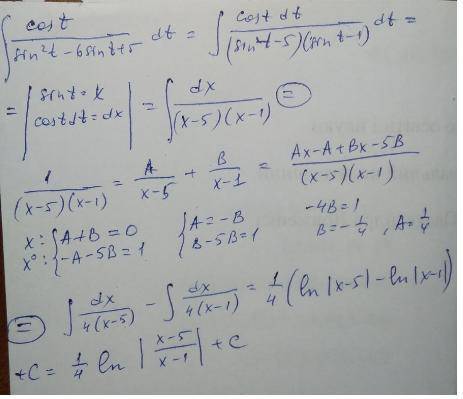 ∫ cost / (sin²t - 6sint + 5) dt = ∫ cost dt / ((sin²t - 5)(sin t - 1)) dt =
= | sint = x, cost dt = dx | = ∫ dx / ((x-5)(x-1)) =
1 / ((x-5)(x-1)) = A / (x-5) + B / (x-1) = (Ax - A + Bx - 5B) / ((x-5)(x-1))
x: { A + B = 0 { A = -B -4B = 1
x⁰: { -A - 5B = 1 { B - 5B = 1 B = -1/4, A = 1/4
= ∫ dx / (4(x-5)) - ∫ dx / (4(x-1)) = 1/4 (ln|x-5| - ln|x-1|)
+C = 1/4 ln |(x-5) / (x-1)| + C